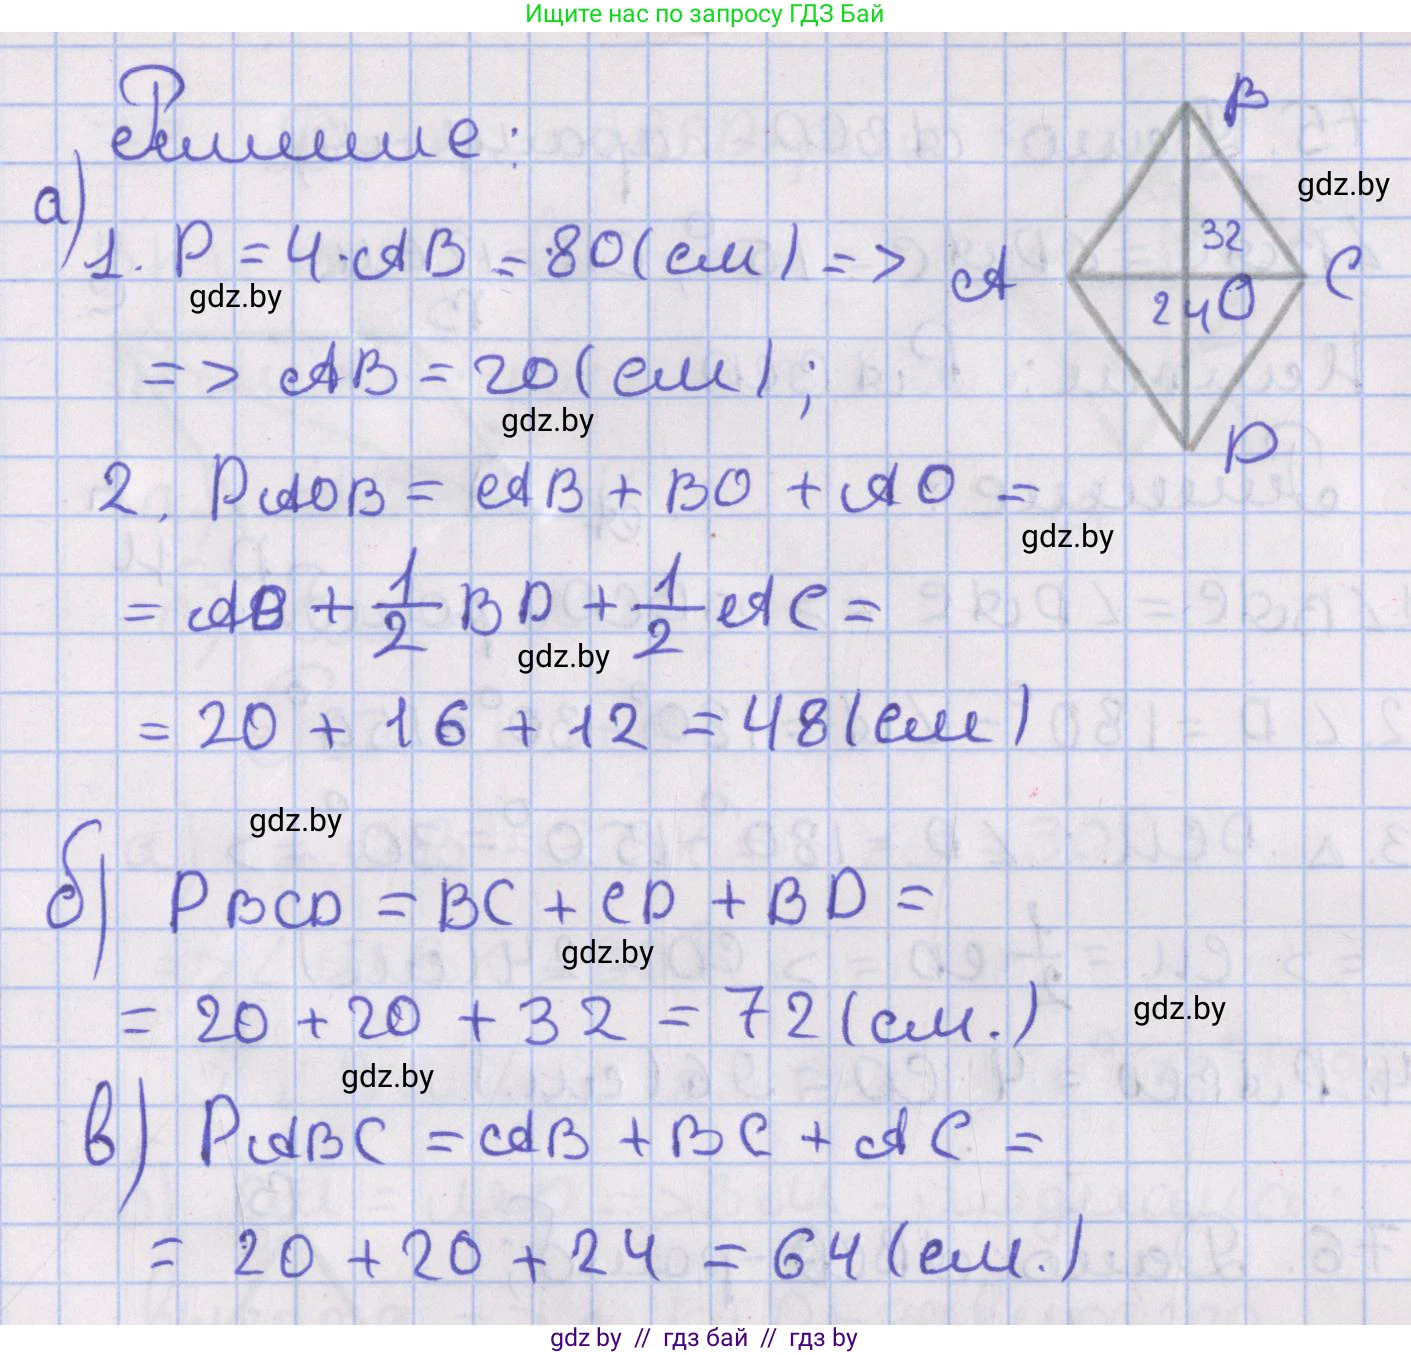 Ищите нас по запросу ГДЗ Бай
Решение:
B
gdz.by
а)
1. P = 4·AB = 80(см) =>
A
32
C
24 O
gdz.by
=> AB = 20(см);
gdz.by
D
2. P AOB = AB + BO + AO =
gdz.by
= AB + 1/2 BD + 1/2 AC =
gdz.by
= 20 + 16 + 12 = 48(см)
gdz.by
б) P BCD = BC + CD + BD =
gdz.by
= 20 + 20 + 32 = 72(см.)
gdz.by
gdz.by
в) P ABC = AB + BC + AC =
= 20 + 20 + 24 = 64(см.)
gdz by // гдз бай // гдз by